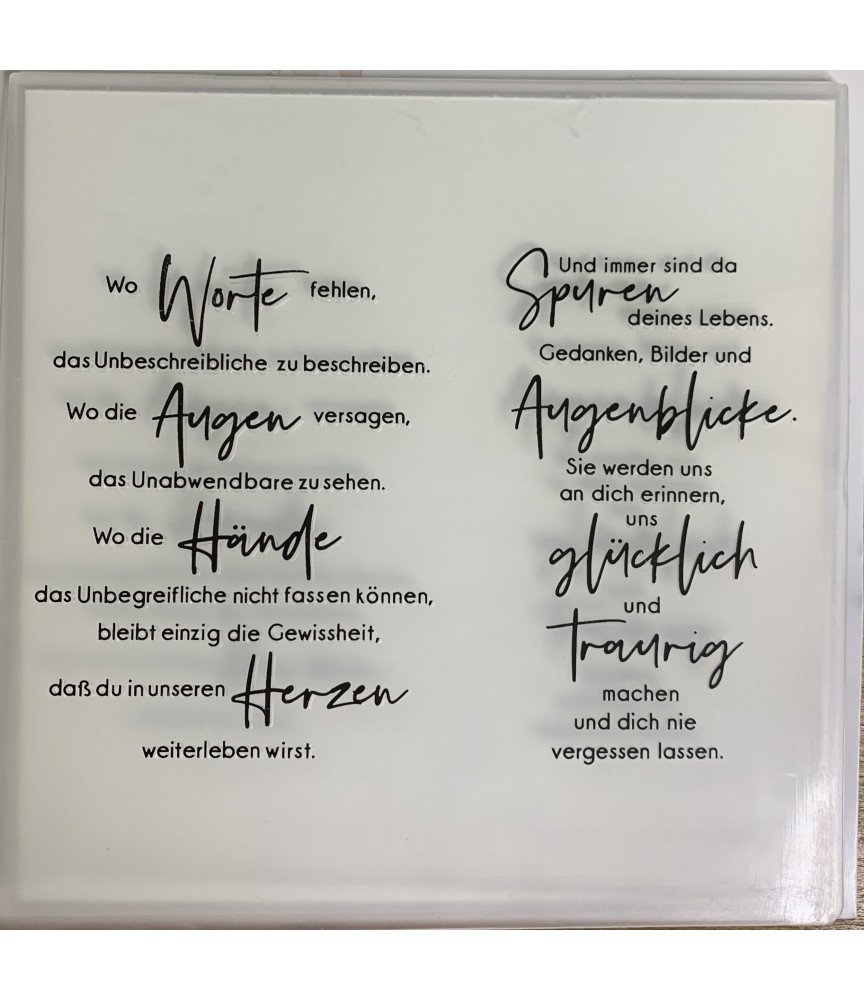 Wo Worte fehlen,
das Unbeschreibliche zu beschreiben.
Wo die Augen versagen,
das Unabwendbare zu sehen.
Wo die Hände
das Unbegreifliche nicht fassen können,
bleibt einzig die Gewissheit,
daß du in unseren Herzen
weiterleben wirst.
Und immer sind da
Spuren
deines Lebens.
Gedanken, Bilder und
Augenblicke.
Sie werden uns
an dich erinnern,
uns
glücklich
und
traurig
machen
und dich nie
vergessen lassen.